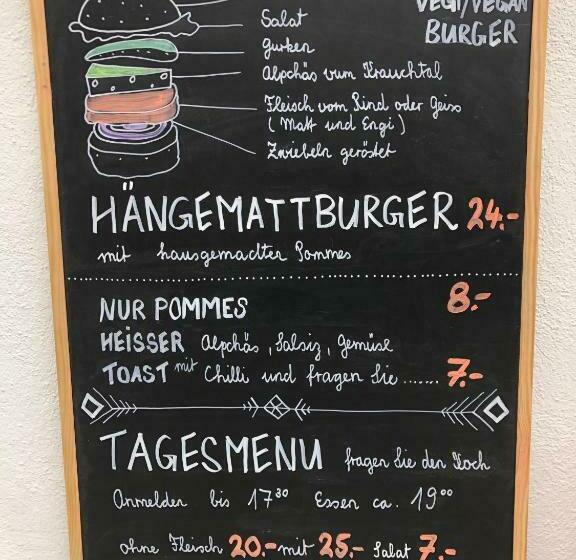 VEGI/VEGAN
BURGER
Salat
Gurken
Alpchäs vum Krauchtal
Fleisch vom Rind oder Geiss
(Matt und Engi)
Zwiebeln geröstet
HÄNGEMATTBURGER 24.-
mit hausgemachten Pommes
NUR POMMES 8.-
HEISSER Alpchäs, Salsiz, Gemüse
TOAST mit Chilli und fragen Sie ....... 7.-
TAGESMENU fragen Sie den Koch
Anmelden bis 17³⁰ Essen ca. 19⁰⁰
ohne Fleisch 20.- mit 25.- Salat 7.-